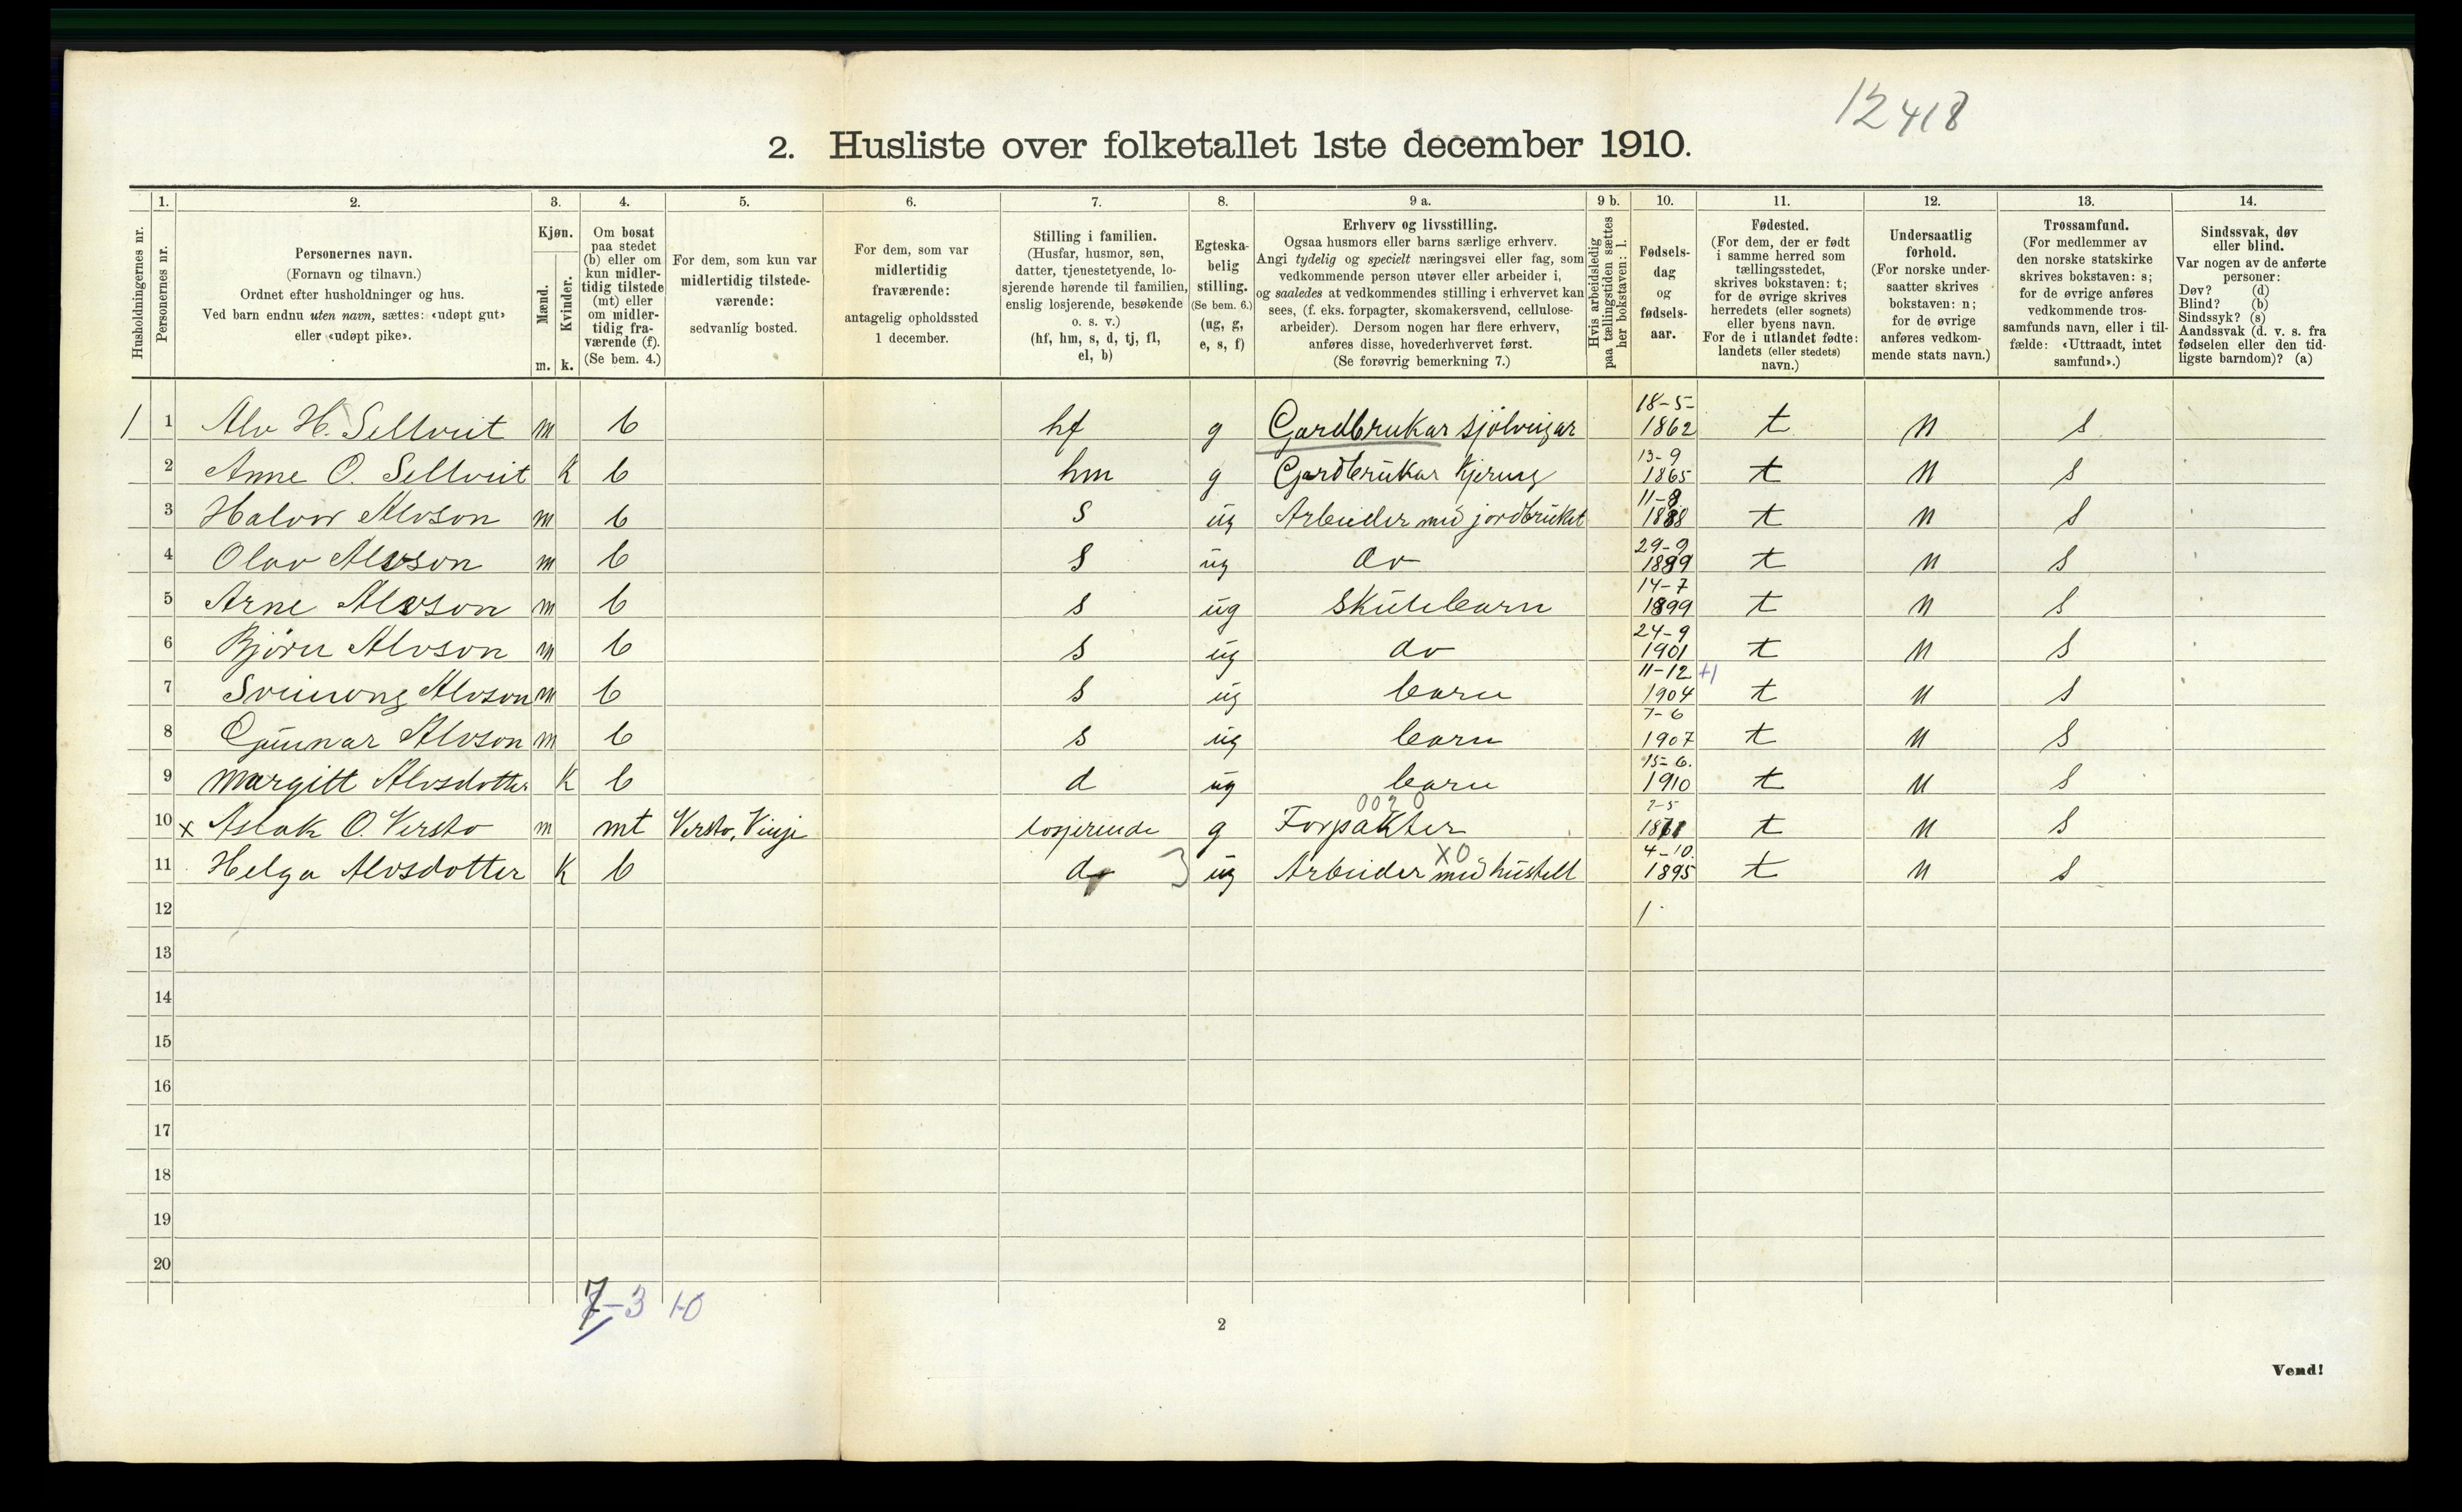 12418
2. Husliste over folketallet 1ste december 1910.
Husholdningernes nr.
1. Personernes nr.
2. Personernes navn. (Fornavn og tilnavn.) Ordnet efter husholdninger og hus. Ved barn endnu uten navn, sættes: «udøpt gut» eller «udøpt pike».
3. Kjøn. Mænd. m. Kvinder. k.
4. Om bosat paa stedet (b) eller om kun midlertidig tilstede (mt) eller om midlertidig fraværende (f). (Se bem. 4.)
5. For dem, som kun var midlertidig tilstedeværende: sedvanlig bosted.
6. For dem, som var midlertidig fraværende: antagelig opholdssted 1 december.
7. Stilling i familien. (Husfar, husmor, søn, datter, tjenestetyende, losjerende hørende til familien, enslig losjerende, besøkende o. s. v.) (hf, hm, s, d, tj, fl, el, b)
8. Egteskabelig stilling. (Se bem. 6.) (ug, g, e, s, f)
9 a. Erhverv og livsstilling. Ogsaa husmors eller barns særlige erhverv. Angi tydelig og specielt næringsvei eller fag, som vedkommende person utøver eller arbeider i, og saaledes at vedkommendes stilling i erhvervet kan sees, (f. eks. forpagter, skomakersvend, cellulosearbeider). Dersom nogen har flere erhverv, anføres disse, hovederhvervet først. (Se forøvrig bemerkning 7.)
9 b. Hvis arbeidsledig paa tællingstiden sættes her bokstaven: l.
10. Fødselsdag og fødselsaar.
11. Fødested. (For dem, der er født i samme herred som tællingsstedet, skrives bokstaven: t; for de øvrige skrives herredets (eller sognets) eller byens navn. For de i utlandet fødte: landets (eller stedets) navn.)
12. Undersaatlig forhold. (For norske undersaatter skrives bokstaven: n; for de øvrige anføres vedkommende stats navn.)
13. Trossamfund. (For medlemmer av den norske statskirke skrives bokstaven: s; for de øvrige anføres vedkommende trossamfunds navn, eller i tilfælde: «Uttraadt, intet samfund».)
14. Sindssvak, døv eller blind. Var nogen av de anførte personer: Døv? (d) Blind? (b) Sindssyk? (s) Aandssvak (d. v. s. fra fødselen eller den tidligste barndom)? (a)
1 1 Alv H. Sellveit m b hf g Gardbrukar sjölveigar 18-5-1862 t n s
2 Anne O. Sellveit k b hm g Gardbrukar Kjering 13-9 1865 t n s
3 Halvor Alvson m b s ug Arbeider med jordbruket 11-8 1888 t n s
4 Olav Alvson m b s ug do 29-9 1889 t n s
5 Arne Alvson m b s ug Skulebarn 14-7 1899 t n s
6 Björn Alvson m b s ug do 24-9 1901 t n s
7 Sveinung Alvson m b s ug barn 11-12 1904 +1 t n s
8 Gunnar Alvson m b s ug barn 7-6 1907 t n s
9 Margitt Alvsdotter k b d ug barn 15-6. 1910 t n s
10 x Aslak O. Versto m mt Versto, Vinje losjerende g Forpakter 0020 t n s
11 Helga Alvsdotter k b d ug Arbeider med hustell XO 4-10. 1895 t n s
12 1
13
14
15
16
17
18
19
20
7-3 10
2
Vend!